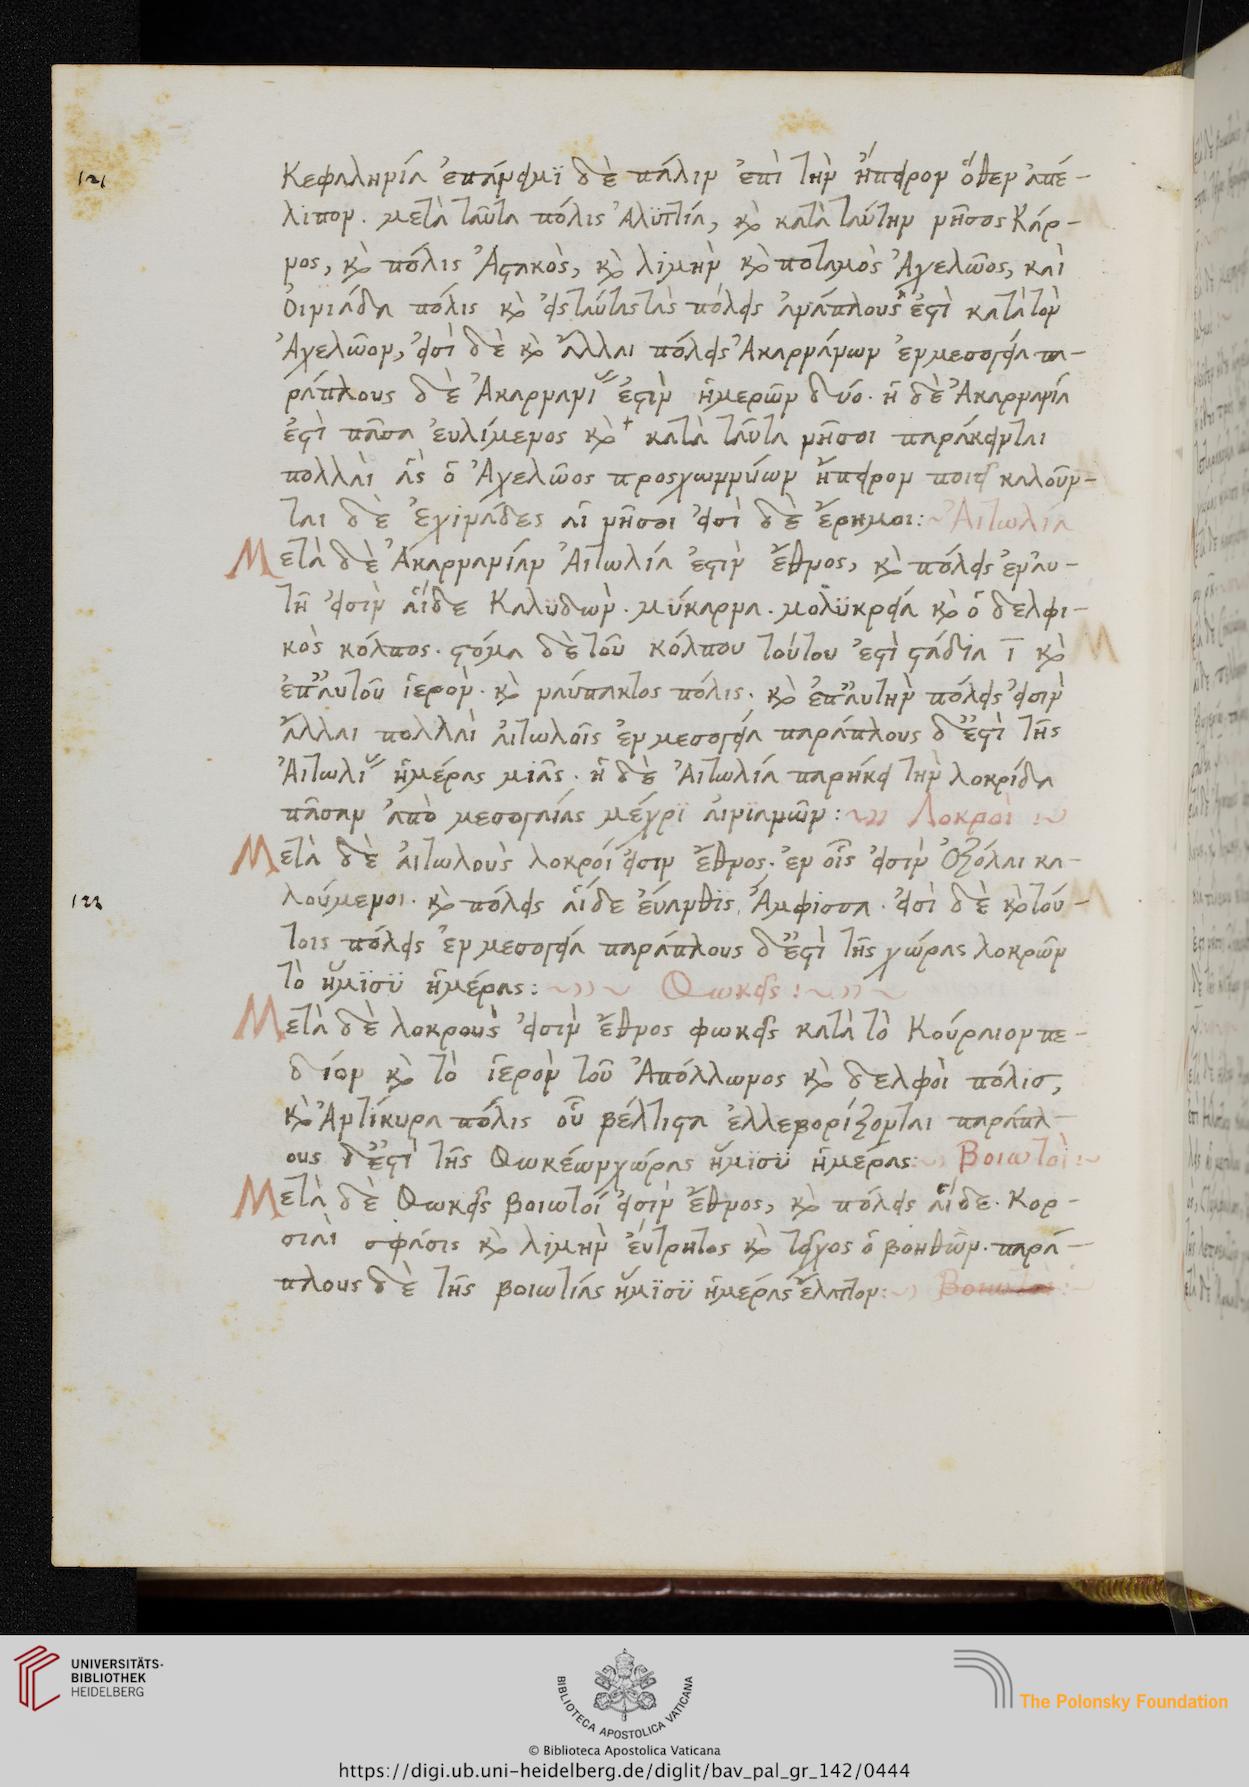 121
Κεφαληνία ἐπάνειμϊ δὲ πάλιν ἐπὶ τὴν ἤπειρον ὅθεν ἀπέ-
λϊπον. μετὰ ταῦτα πόλις Ἀλϋτία, κὶ κατὰ ταύτην νῆσος Κάρ-
νος, κὶ πόλις Ἀστακὸς, κὶ λιμὴν κὶ ποταμὸς Ἀχελῶος, καὶ
Οἰνιάδα πόλις κὶ εἰς ταύτας τὰς πόλεις ἀνάπλους ἐστὶ κατὰ τὸν
Ἀχελῶον, εἰσὶ δὲ κὶ ἄλλαι πόλεις Ἀκαρνάνων ἐν μεσογεία πα-
ράπλους δὲ Ἀκαρνανί ἐστὶν ἡμερῶν δύο. ἡ δὲ Ἀκαρνανία
ἐστὶ πᾶσα ἐυλίμενος κὶ κατὰ ταῦτα νῆσοι παράκεινται
πολλαὶ ἃς ὁ Ἀχελῶος προσχωννύων ἤπειρον ποιεῖ καλοῦν-
ται δὲ Ἐχινάδες αἱ νῆσοι εἰσὶ δὲ ἔρημοι: Ἀιτωλία
Μετὰ δὲ Ἀκαρνανίαν Ἀιτωλία ἐστὶν ἔθνος, κὶ πόλεις ἐν ἀυ-
τῆ εἰσὶν αἵδε Καλϋδων. μύκαρνα. μολϋκρεία κὶ ὁ δελφι-
κὸς κόλπος. στόμα δὲ τοῦ κόλπου τούτου ἐστὶ στάδια ῑ κὶ
ἐπ' ἀυτοῦ ἱερὸν. κὶ ναύπακτος πόλις. κὶ ἐπ' ἀυτὴν πόλεις εἰσὶν
ἄλλαι πολλαὶ ἀιτωλοῖς ἐν μεσογεία παράπλους δ' ἐστὶ τῆς
Ἀιτωλί ἡμέρας μιᾶς. ἡ δὲ Ἀιτωλία παρήκει τὴν λοκρίδα
πᾶσαν ἀπὸ μεσογαίας μέχρϊ ἀινϊανῶν: Λοκροὶ:
Μετὰ δὲ ἀιτωλοὺς λοκροί εἰσιν ἔθνος. ἐν οἷς εἰσὶν Ὀζόλαι κα-
λούμενοι. κὶ πόλεις αἵδε ἐύανθις, Ἄμφισσα. εἰσὶ δὲ κὶ τού-
122
τοις πόλεις ἐν μεσογεία παράπλους δ' ἐστὶ τῆς χώρας λοκρῶν
τὸ ἥμϊσϋ ἡμέρας: Φωκεῖς:
Μετὰ δὲ λοκροὺς εἰσὶν ἔθνος φωκεῖς κατὰ τὸ Κούραιον πε-
δίον κὶ τὸ ἱερὸν τοῦ Ἀπόλλωνος κὶ δελφοὶ πόλις,
κὶ Ἀντίκυρα πόλις οὗ βέλτιστα ἐλλεβορίζονται παράπλ-
ους δ' ἐστὶ τῆς Φωκέων χώρας ἥμϊσϋ ἡμέρας: Βοιωτοὶ:
Μετὰ δὲ Φωκεῖς βοιωτοί εἰσὶν ἔθνος, κὶ πόλεις αἵδε. Κορ-
σιαὶ σφάσις κὶ λιμὴν ἐύτρητος κὶ τεῖχος ὁ βοηθῶν. παρά-
πλους δὲ τῆς βοιωτίας ἥμϊσϋ ἡμέρας ἔλαττον: Βοιωτοὶ:
UNIVERSITÄTS-
BIBLIOTHEK
HEIDELBERG
BIBLIOTECA APOSTOLICA VATICANA
The Polonsky Foundation
© Biblioteca Apostolica Vaticana
https://digi.ub.uni-heidelberg.de/diglit/bav_pal_gr_142/0444